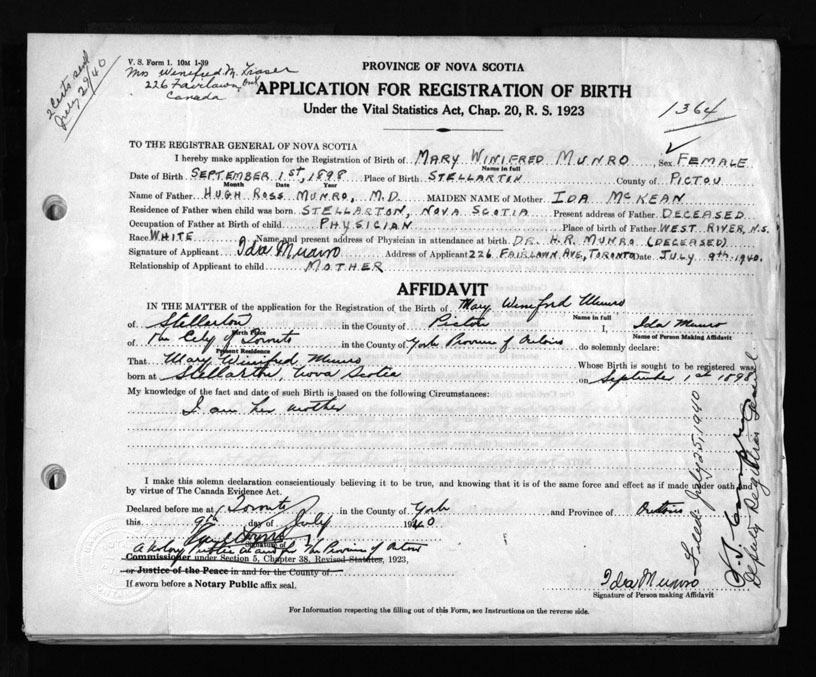 2 Certs
July 29/40
V. S. Form 1. 10M 1-39
Mrs Winifred M. Fraser
226 Fairlawn Ont
Canada
PROVINCE OF NOVA SCOTIA
APPLICATION FOR REGISTRATION OF BIRTH
Under the Vital Statistics Act, Chap. 20, R. S. 1923
1364
TO THE REGISTRAR GENERAL OF NOVA SCOTIA
I hereby make application for the Registration of Birth of MARY WINIFRED MUNRO, Sex FEMALE
Name in full
Date of Birth SEPTEMBER 1st, 1898 Place of Birth STELLARTON County of PICTOU
Month Date Year
Name of Father HUGH ROSS MUNRO, M.D. MAIDEN NAME of Mother IDA McKEAN
Residence of Father when child was born STELLARTON, NOVA SCOTIA Present address of Father DECEASED
Occupation of Father at Birth of child PHYSICIAN Place of birth of Father WEST RIVER, N.S.
Race WHITE Name and present address of Physician in attendance at birth DR. H.R. MUNRO (DECEASED)
Signature of Applicant Ida Munro Address of Applicant 226 FAIRLAWN AVE, TORONTO Date JULY 9th 1940.
Relationship of Applicant to child MOTHER
AFFIDAVIT
IN THE MATTER of the application for the Registration of the Birth of Mary Winifred Munro
Name in full
of Stellarton in the County of Pictou I, Ida Munro
Birth Place
Name of Person Making Affidavit
of The City of Toronto in the County of York Province of Ontario do solemnly declare:
Present Residence
That Mary Winifred Munro Whose Birth is sought to be registered was
born at Stellarton, Nova Scotia on September 1st 1898
My knowledge of the fact and date of such Birth is based on the following Circumstances:
I am her mother
I make this solemn declaration conscientiously believing it to be true, and knowing that it is of the same force and effect as if made under oath and
by virtue of The Canada Evidence Act.
Declared before me at Toronto in the County of York and Province of Ontario
this 9th day of July 1940
Signature of
A Notary Public in and for The Province of Ontario
Commissioner under Section 5, Chapter 38, Revised Statutes, 1923,
or Justice of the Peace in and for the County of
If sworn before a Notary Public affix seal.
Ida Munro
Signature of Person making Affidavit
For Information respecting the filling out of this Form, see Instructions on the reverse side.
Filed July 25, 1940
Deputy Registrar General